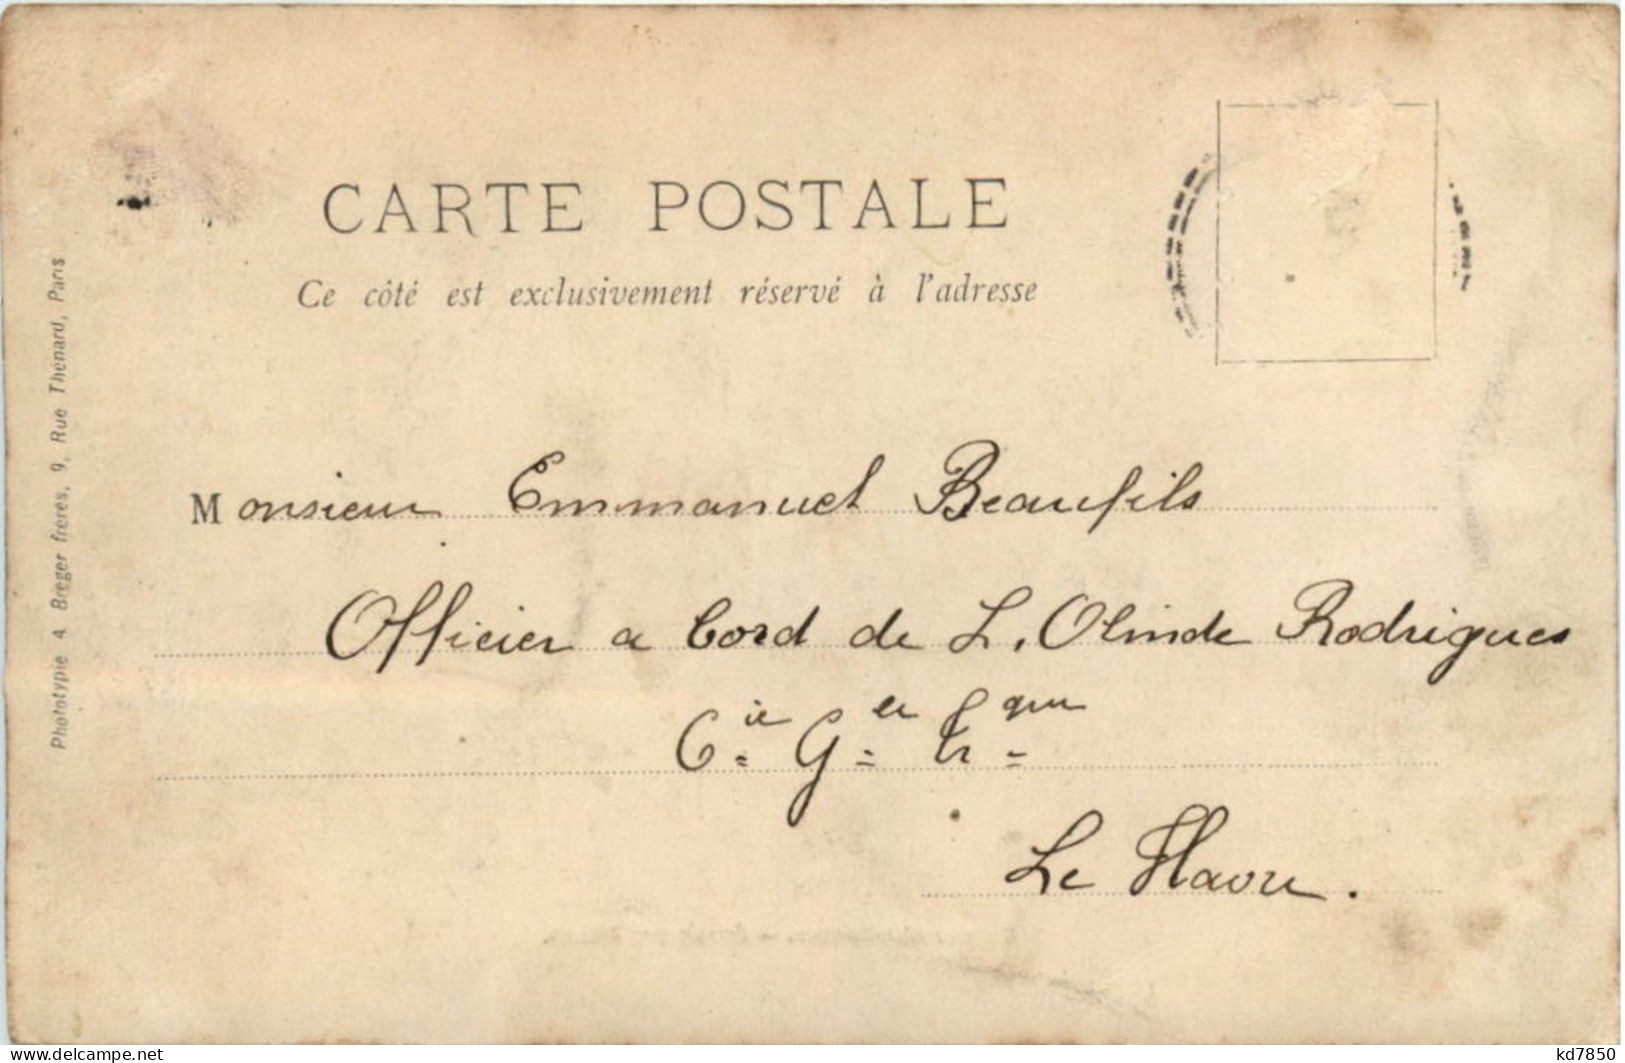 CARTE POSTALE
Ce côté est exclusivement réservé à l'adresse
Phototypie A Breger frères, 9, Rue Thenard, Paris
Monsieur Emmanuel Beaufils
Officier a bord de L. Olinde Rodrigues
Cie Gle Tr que
Le Havre.
www.delcampe.net
kd7850